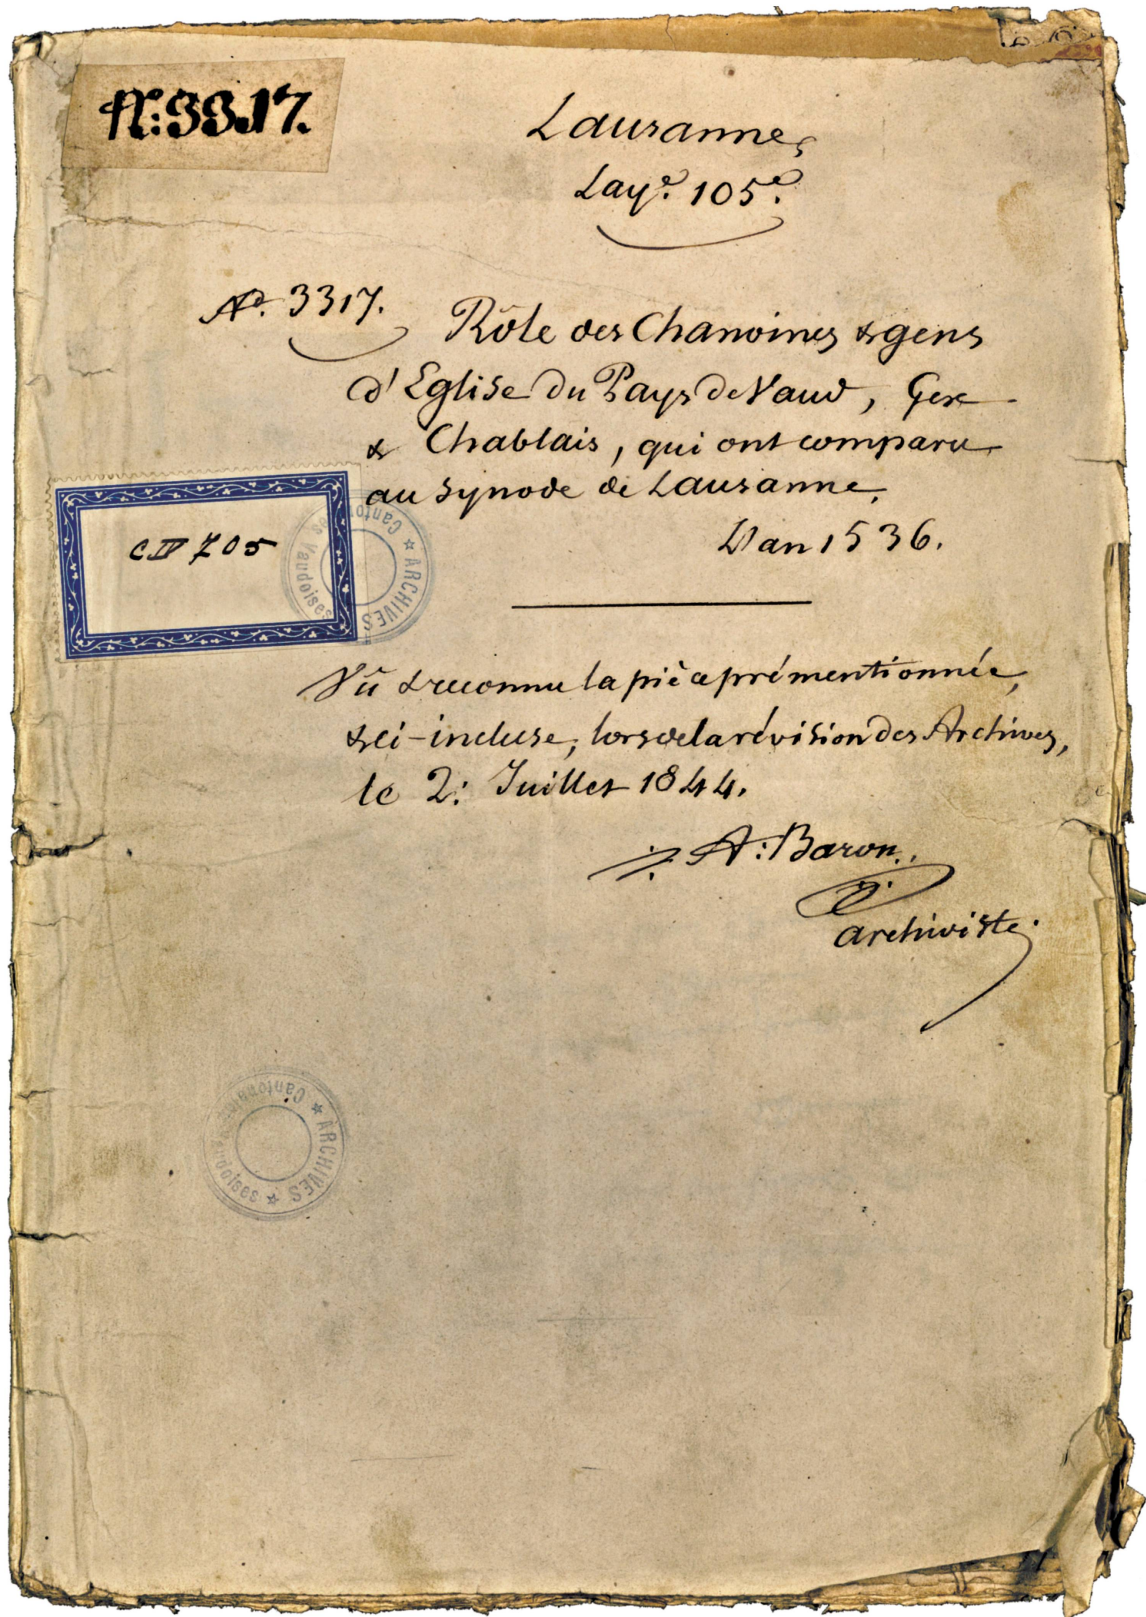 N.º: 3317.
Lausanne,
Laye. 105e.
Nº. 3317.
Rôle des Chanoines & gens
d'Eglise du Pays de Vaud, Gex
& Chablais, qui ont comparu
au Synode de Lausanne.
L'an 1536.
C IV 705
ARCHIVES Cantonales Vaudoises
Vû & reconnu la pièce prémentionnée,
& ci-incluse, lors de la révision des Archives,
le 2: Juillet 1844.
A: Baron.
archiviste.
ARCHIVES Cantonales Vaudoises